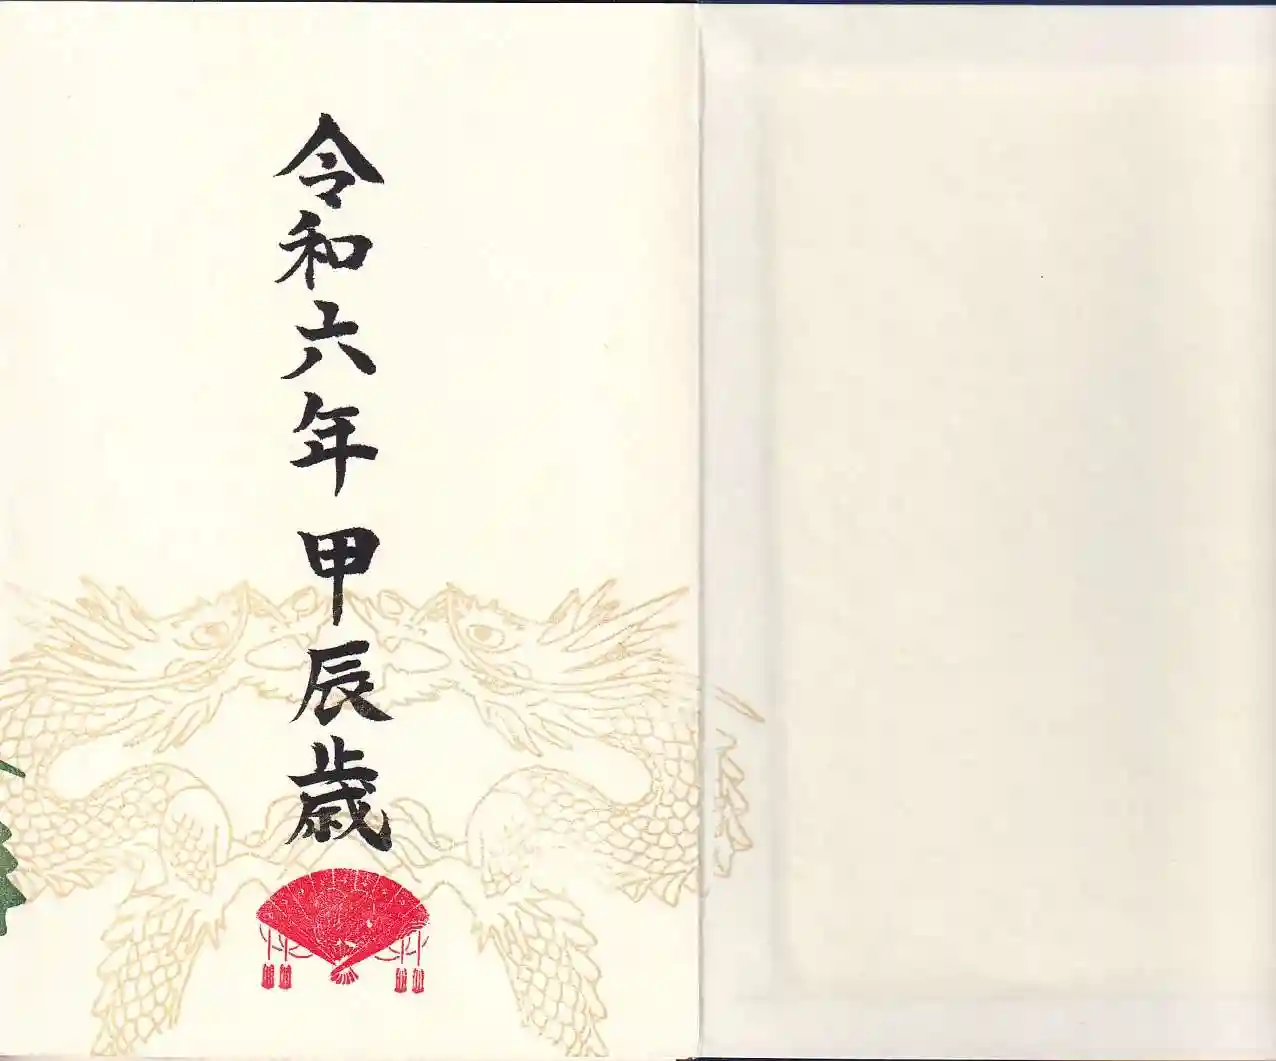 令和六年 甲辰歳